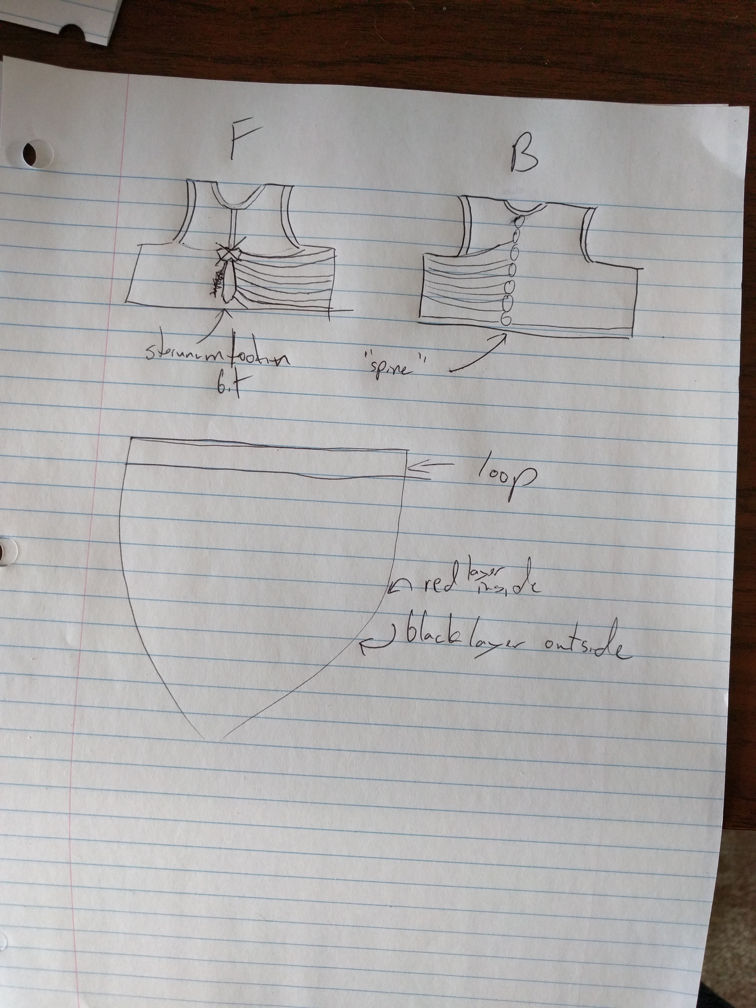 F
B
sternum
bit
"spine"
loop
red layer
inside
black layer outside